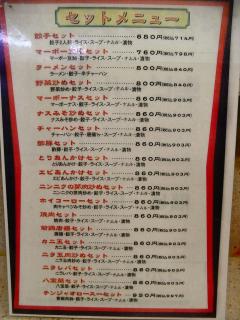 セットメニュー
餃子セット 680円(税込714円)
餃子2人前・ライス・スープ・ナムル・漬物
マーボー豆腐セット 760円(税込798円)
マーボー豆腐・餃子・ライス・スープ・ナムル・漬物
ラーメンセット 800円(税込840円)
ラーメン・餃子・半チャーハン
野菜炒めセット 800円(税込840円)
野菜炒め・餃子・ライス・スープ・ナムル・漬物
マーボーナスセット 860円(税込903円)
マーボーナス・餃子・ライス・スープ・ナムル・漬物
ナスみそ炒めセット 860円(税込903円)
ナスみそ炒め・餃子・ライス・スープ・ナムル・漬物
チャーハンセット 860円(税込903円)
チャーハン・餃子・スープ・ナムル・漬物
酢豚セット 860円(税込903円)
酢豚・餃子・ライス・スープ・ナムル・漬物
とりあんかけセット 860円(税込903円)
とりあんかけ・餃子・ライス・スープ・ナムル・漬物
エビあんかけセット 860円(税込903円)
エビあんかけ・餃子・ライス・スープ・ナムル・漬物
ニンニクの芽肉炒めセット 860円(税込903円)
ニンニクの芽肉炒め・餃子・ライス・スープ・ナムル・漬物
ホイコーローセット 860円(税込903円)
肉キャベツみそ炒め・餃子・ライス・スープ・ナムル・漬物
焼肉セット 860円(税込903円)
焼肉・餃子・ライス・スープ・ナムル・漬物
セット 860円(税込903円)
餃子・ライス・スープ・ナムル・漬物
カニ玉セット 860円(税込903円)
カニ玉・餃子・ライス・スープ・ナムル・漬物
ニラ玉肉炒めセット 860円(税込903円)
ニラ玉肉炒め・餃子・ライス・スープ・ナムル・漬物
ニラレバセット 860円(税込903円)
ニラレバ・餃子・ライス・スープ・ナムル・漬物
八宝菜セット 860円(税込903円)
八宝菜・餃子・ライス・スープ・ナムル・漬物
チンジャオロースーセット 950円(税込997円)
餃子・ライス・スープ・ナムル・漬物